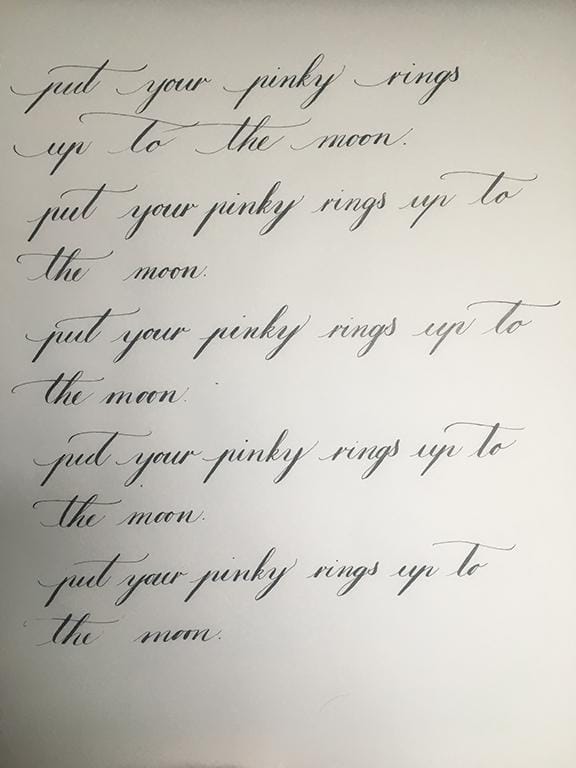 put your pinky rings
up to the moon.
put your pinky rings up to
the moon.
put your pinky rings up to
the moon.
put your pinky rings up to
the moon.
put your pinky rings up to
the moon.